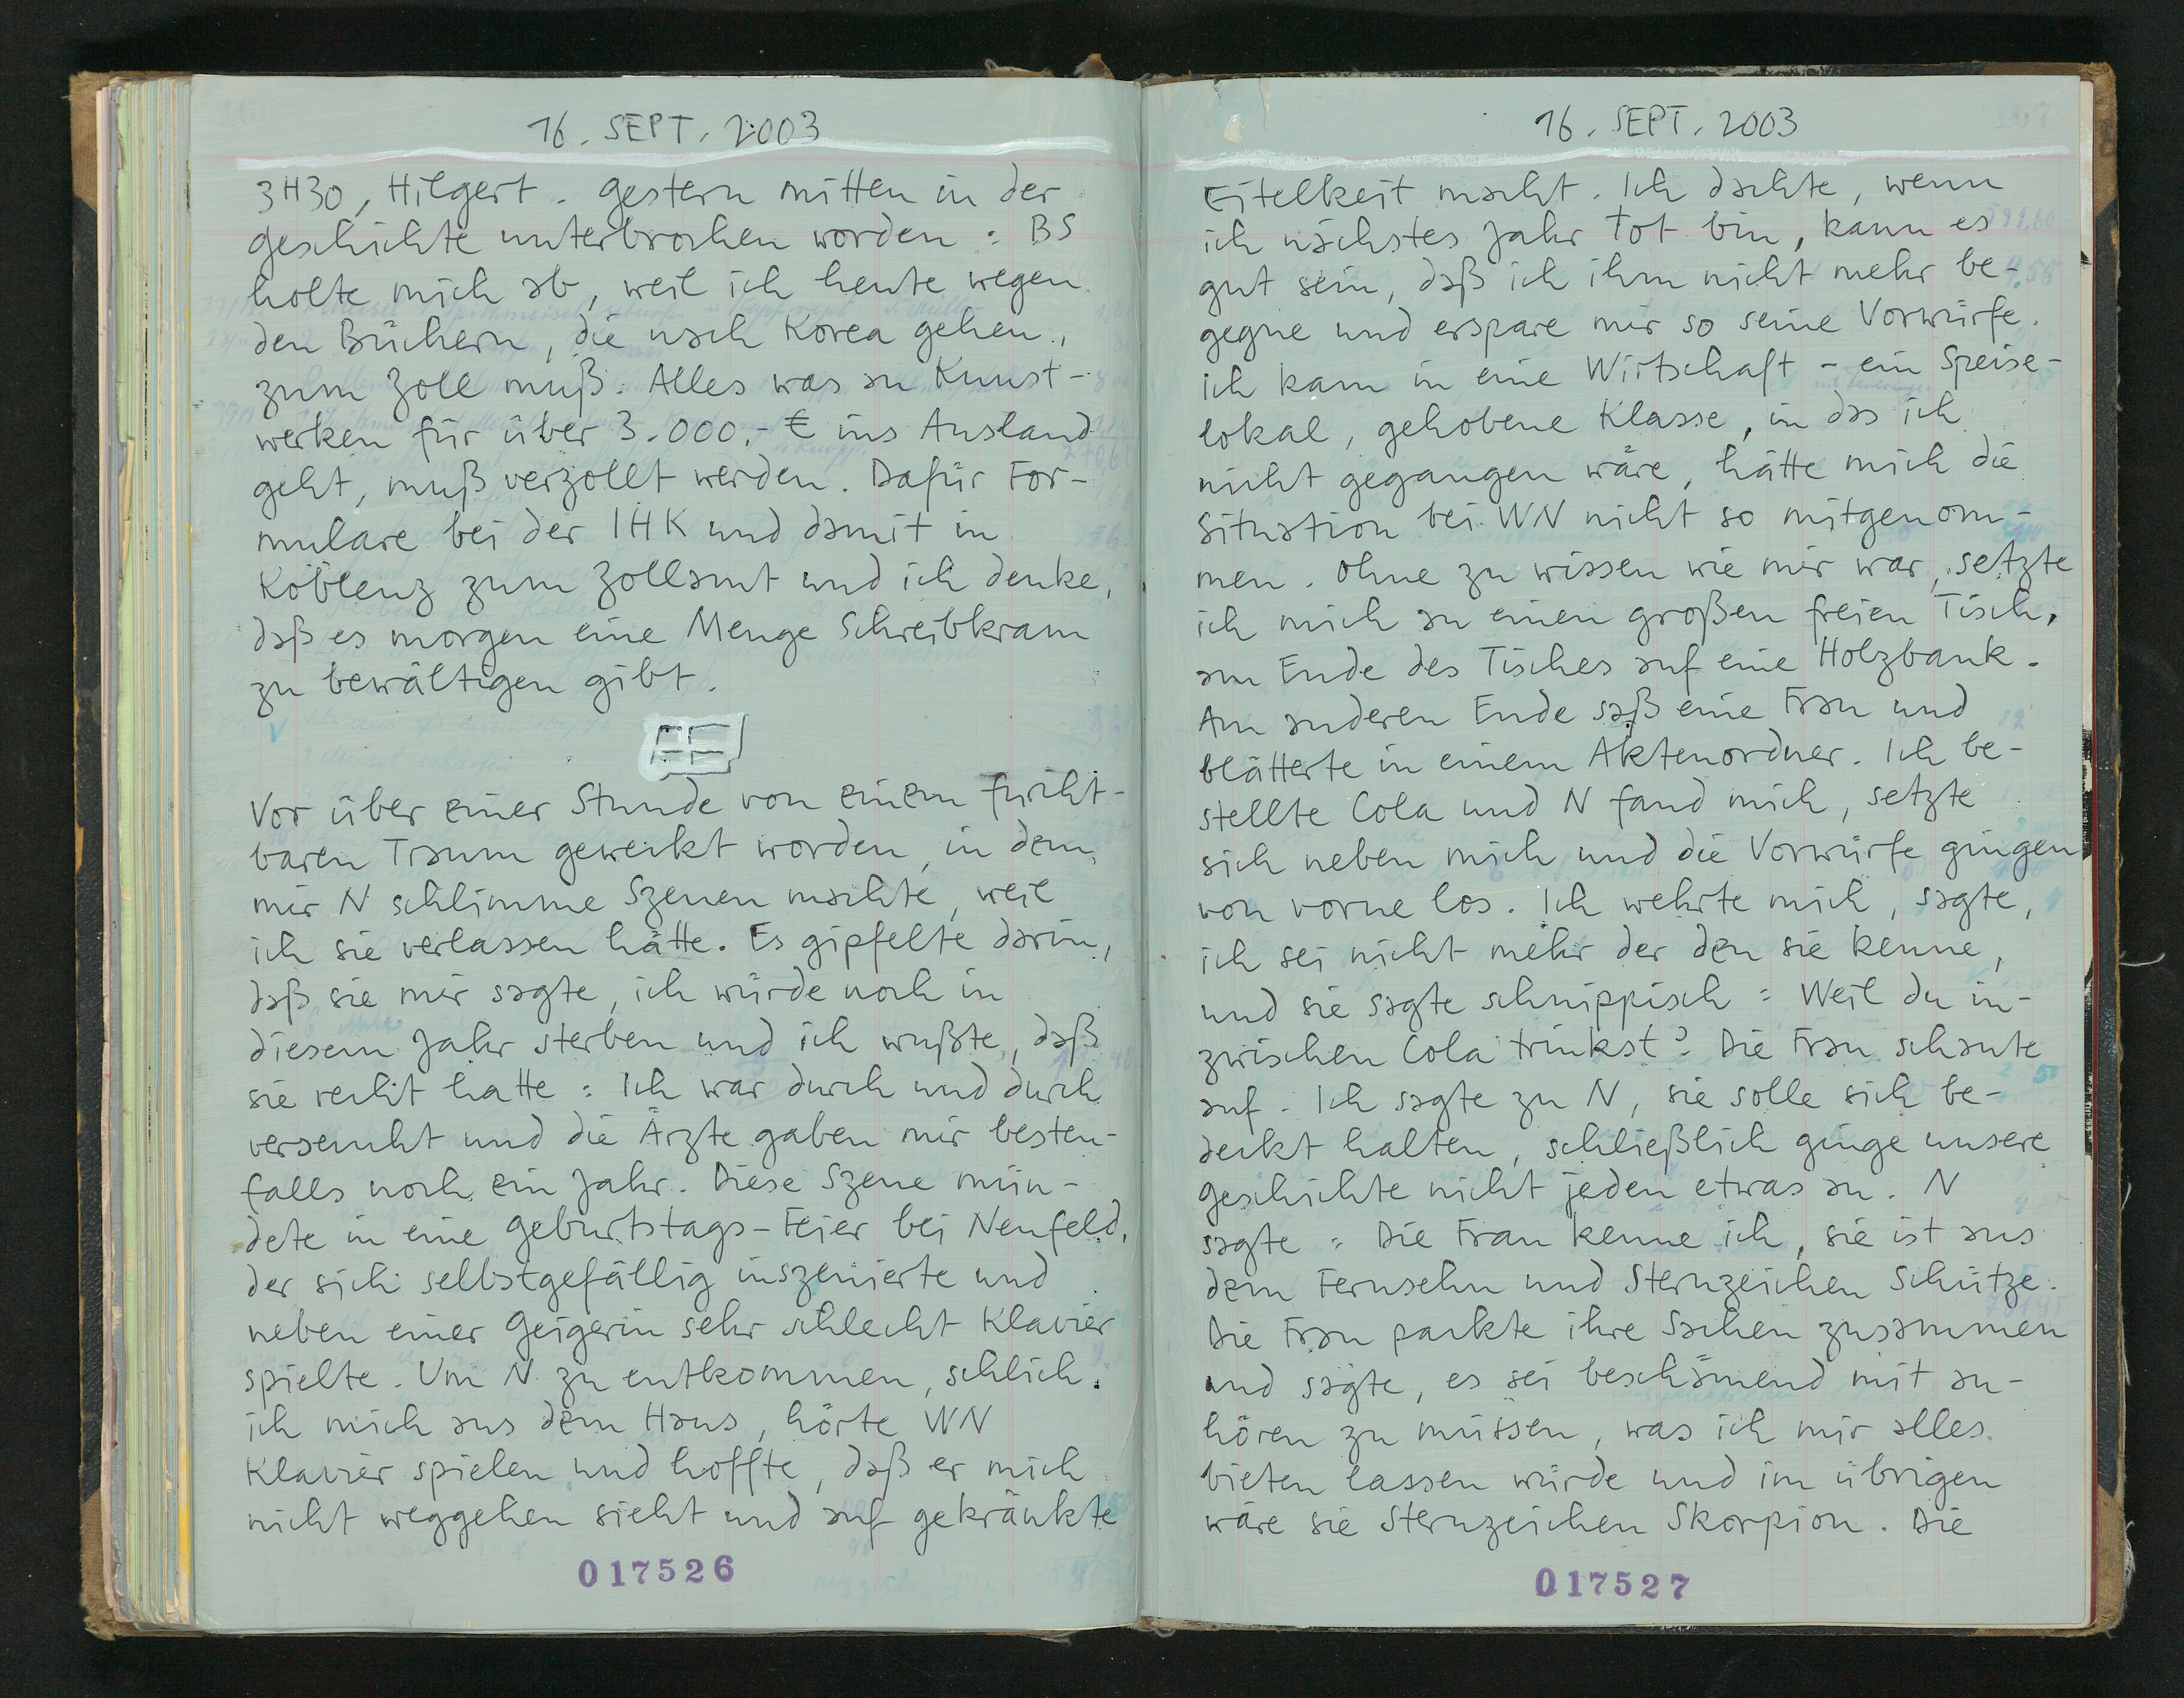 16. SEPT. 2003
3H30, Hilgert. Gestern mitten in der
Geschichte unterbrochen worden: BS
holte mich ab, weil ich heute wegen
den Büchern, die nach Korea gehen,
zum Zoll muß. Alles was an Kunst-
werken für über 3.000,- € ins Ausland
geht, muß verzollt werden. Dafür For-
mulare bei der IHK und damit in
Koblenz zum Zollamt und ich denke,
daß es morgen eine Menge Schreibkram
zu bewältigen gibt.
Vor über einer Stunde von einem furcht-
baren Traum geweckt worden, in dem
mir N schlimme Szenen machte, weil
ich sie verlassen hätte. Es gipfelte darin,
daß sie mir sagte, ich würde noch in
diesem Jahr sterben und ich wußte, daß
sie recht hatte: Ich war durch und durch
verseucht und die Ärzte gaben mir besten-
falls noch ein Jahr. Diese Szene mün-
dete in eine Geburtstags-Feier bei Neufeld,
der sich selbstgefällig inszenierte und
neben einer Geigerin sehr schlecht Klavier
spielte. Um N zu entkommen, schlich
ich mich aus dem Haus, hörte WN
Klavier spielen und hoffte, daß er mich
nicht weggehen sieht und auf gekränkte
017526
16. SEPT. 2003
Eitelkeit macht. Ich dachte, wenn
ich nächstes Jahr tot bin, kann es
gut sein, daß ich ihm nicht mehr be-
gegne und erspare mir so seine Vorwürfe.
Ich kam in eine Wirtschaft - ein Speise-
lokal, gehobene Klasse, in das ich
nicht gegangen wäre, hätte mich die
Situation bei WN nicht so mitgenom-
men. Ohne zu wissen wie mir war, setzte
ich mich an einen großen freien Tisch,
am Ende des Tisches auf eine Holzbank.
Am anderen Ende saß eine Frau und
blätterte in einem Aktenordner. Ich be-
stellte Cola und N fand mich, setzte
sich neben mich und die Vorwürfe gingen
von vorne los. Ich wehrte mich, sagte,
ich sei nicht mehr der den sie kenne,
und sie sagte schnippisch: Weil du in-
zwischen Cola trinkst? Die Frau schaute
auf. Ich sagte zu N, sie solle sich be-
deckt halten, schließlich ginge unsere
Geschichte nicht jeden etwas an. N
sagte: Die Frau kenne ich, sie ist aus
dem Fernsehn und Sternzeichen Schütze.
Die Frau packte ihre Sachen zusammen
und sagte, es sei beschämend mit an-
hören zu müssen, was ich mir alles
bieten lassen würde und im übrigen
wäre sie Sternzeichen Skorpion. Die
017527